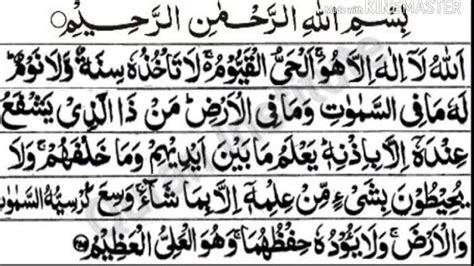 Made with KINEMASTER
بِسْمِ اللهِ الرَّحْمٰنِ الرَّحِيْمِ
اَللهُ لَآ اِلٰهَ اِلَّا هُوَ ۚ اَلْحَيُّ الْقَيُّوْمُ ۚ لَا تَاْخُذُهٗ سِنَةٌ وَّلَا نَوْمٌ ؕ
لَهٗ مَا فِى السَّمٰوٰتِ وَمَا فِى الْاَرْضِ ؕ مَنْ ذَا الَّذِىْ يَشْفَعُ
عِنْدَهٗٓ اِلَّا بِاِذْنِهٖ ؕ يَعْلَمُ مَا بَيْنَ اَيْدِيْهِمْ وَمَا خَلْفَهُمْ ۚ وَلَا
يُحِيْطُوْنَ بِشَىْءٍ مِّنْ عِلْمِهٖٓ اِلَّا بِمَا شَآءَ ۚ وَسِعَ كُرْسِيُّهُ السَّمٰوٰتِ
وَالْاَرْضَ ۚ وَلَا يَئُوْدُهٗ حِفْظُهُمَا ۚ وَهُوَ الْعَلِىُّ الْعَظِيْمُ